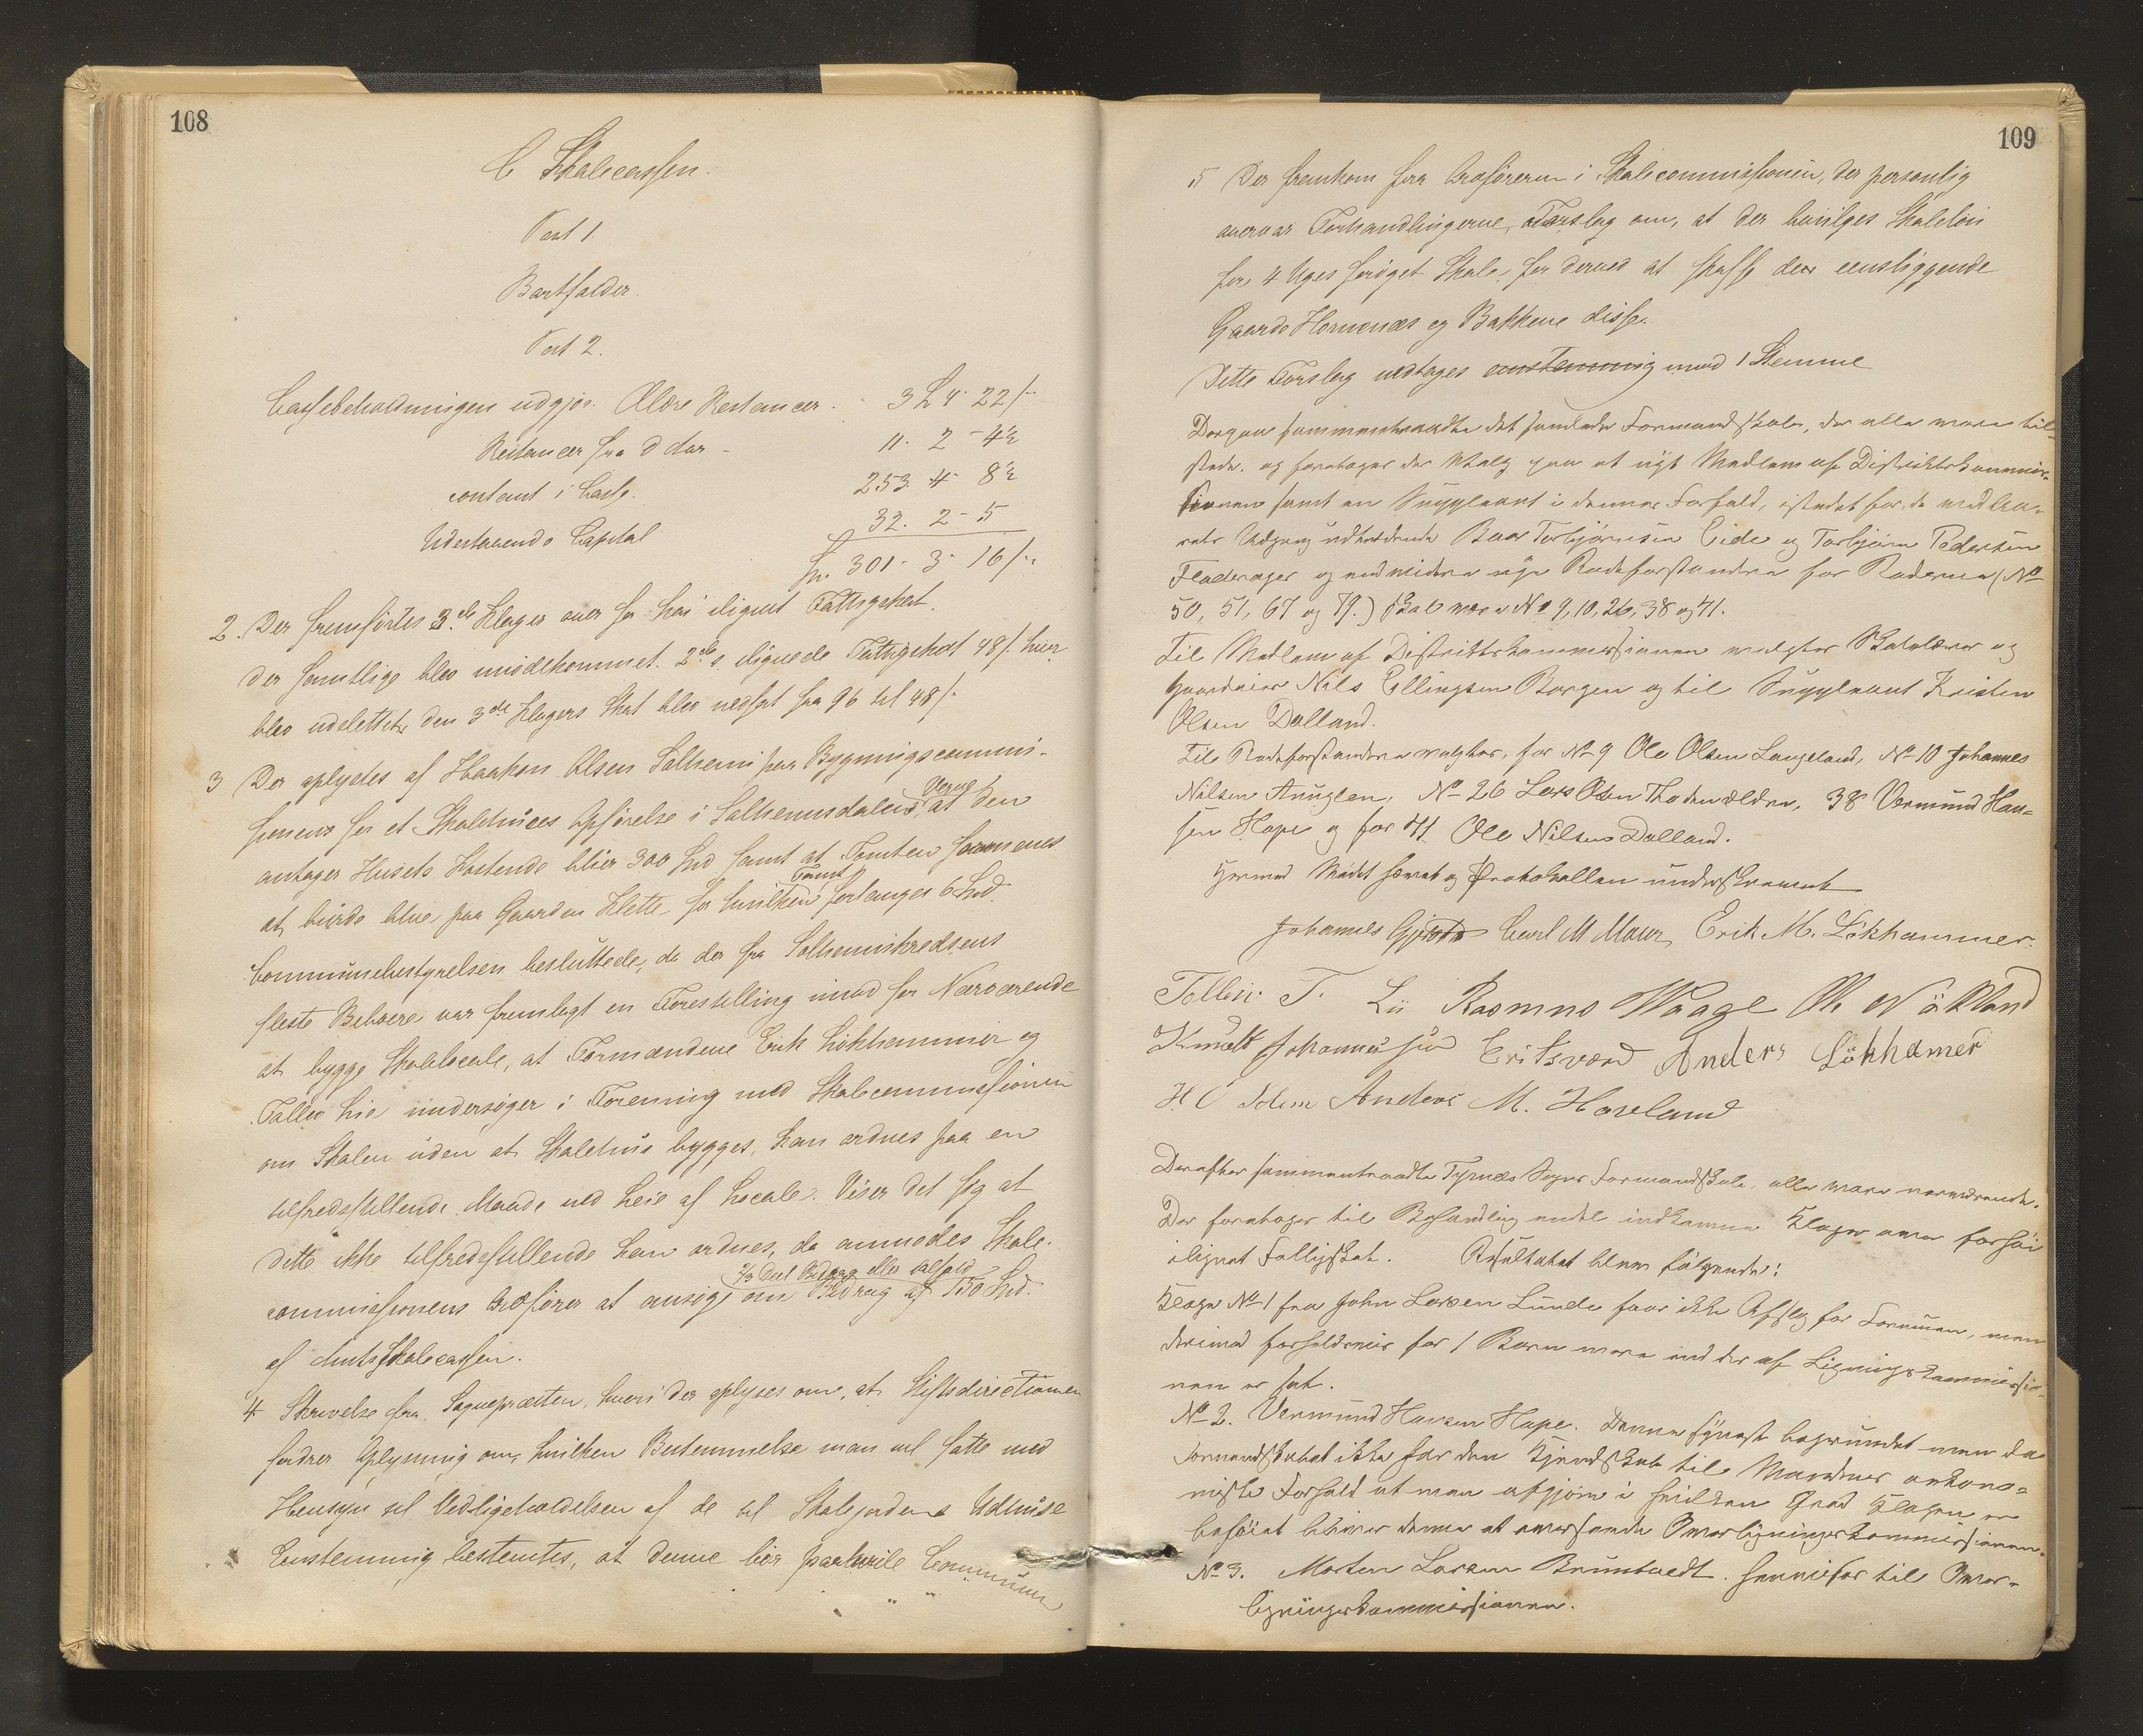 108
C Skolecassen.
Post 1.
Bortfalder.
Post 2.
Cassebeholdningen udgjør. Ældre Restancer. 3 4 22/-
Restancer fra d Aar - 11. 2 - 4½
contant i Casse. 253 4 8½
Udestaaende Capital 32. 2 - 5
301 - 3 - 16/-
2. Der fremførtes 3de Klager over for høi ilignet Fattigskat.
der samtlige blev imødekommet. 2de ilignede Fattigskat 48/. hver
blev udslettet, den 3die Klagers Skat blev nedsat fra 96 til 48/-
3 Der oplystes af Haakon Olsen Solheim paa Bygningscommis-
sionens for et Skolehuses Opførelse i Solheimsdalens Vegne at den
antager Husets Kostende bliver 300 Spd samt at Tomten formenes
at burde blive paa Gaarden Klette, for hvilken Tomt forlanges 6 Spd.
Communebestyrelsen besluttede, da der fra Solheimskredsens
fleste Beboere var fremlagt en Forestilling imod for Nærværende
at bygge Skolelocale, at Formændene Erik Løkhammer og
Tollev Lie undersøger i Forening med Skolecommissionen
om Skolen uden at Skolehus bygges, kan ordnes paa en
tilfredsstillende Maade ved Leie af Locale. Viser det sig at
dette ikke tilfredsstillende kan ordnes, da anmodes Skole-
commissionens Ordfører at ansøge om ⅓ Deel Bidrag eller ialfald Bidrag af 150 Spd.
af Amtsskolecassen.
4 Skrivelse fra Sognepræsten, hvori der oplyses om, at Stiftsdirectionen
fordrer Oplysning om, hvilken Bestemmelse man vil fatte med
Hensyn til Vedligeholdelsen af de til Skolejordene Udhuse
Enstemmig bestemtes, at denne bør paahvile Communen
109
5 Der fremkom fra Ordføreren i Skolecommissionen, der personlig
overvar Forhandlingerne, Forslag om, at der bevilges Skoleløn
for 4 Uges forøget Skole, for derved at skaffe de eensliggende
Gaarde Hovenæs og Bakkene disse.
Dette Forslag vedtages enstemmig mod 1 Stemme
Derpaa sammentraadte det samlede Formandskab, der alle vare til-
stede. og foretoges der Valg paa et nyt Medlem af Distriktskommis-
sionen samt en Suppleant i dennes Forfald, istedet for de ved Aa-
rets Udgang udtrædende Baar Torbjørnsen Eide og Torbjørn Pedersen
Fladerager og endvidere nye Rodeforstandere for Roderne (No
50, 51, 67 og 79.) skal være No 9, 10, 26, 38 og 41.
Til Medlem af Distriktskommissionen valgtes Skolelærer og
Gaardeier Nils Ellingsen Borgen og til Suppleant Kristen
Olsen Dalland.
Til Rodeforstandere valgtes, for No 9 Ole Olsen Langeland, No 10 Johannes
Nilsen Anuglen, No 26 Lars Olsen Thoden ældre, 38 Vermund Han-
sen Hope og for 41 Ole Nilsen Dalland.
Hermed Mødet hævet og Protokollen underskrevet
Johannes Carl M Maur Erik M. Løkhammer.
Tollev T. Lii Rasmus Waage Ole Nökland
Knudt Johannessen Eritsvær Anders Lökhamer
H. C Solem Anders M. Haveland
Derefter sammentraadte Tysnæs Sogns Formandskab, alle vare nærværende.
Der foretoges til Behandling endel indkomne Klager over forhøi
ilignet Fattigskat. Resultatet blev følgende:
Klage No 1 fra John Larsen Lunde faar ikke Afslag for Formuen, men
derimod forholdsviis for 1 Barn mere end der af Ligningskommissio-
nen er sat.
No 2. Vermund Hansen Hope. Denne synest begrundet men da
Formandskabet ikke har den Kjendskab til Mandens økono-
miske Forhold at man afgjøre i hvilken Grad Klagen er
beføiet bliver denne at oversende Overligningskommissionen.
No 3. Morten Larsen Bruntvedt. henvises til Over-
ligningskommissionen.